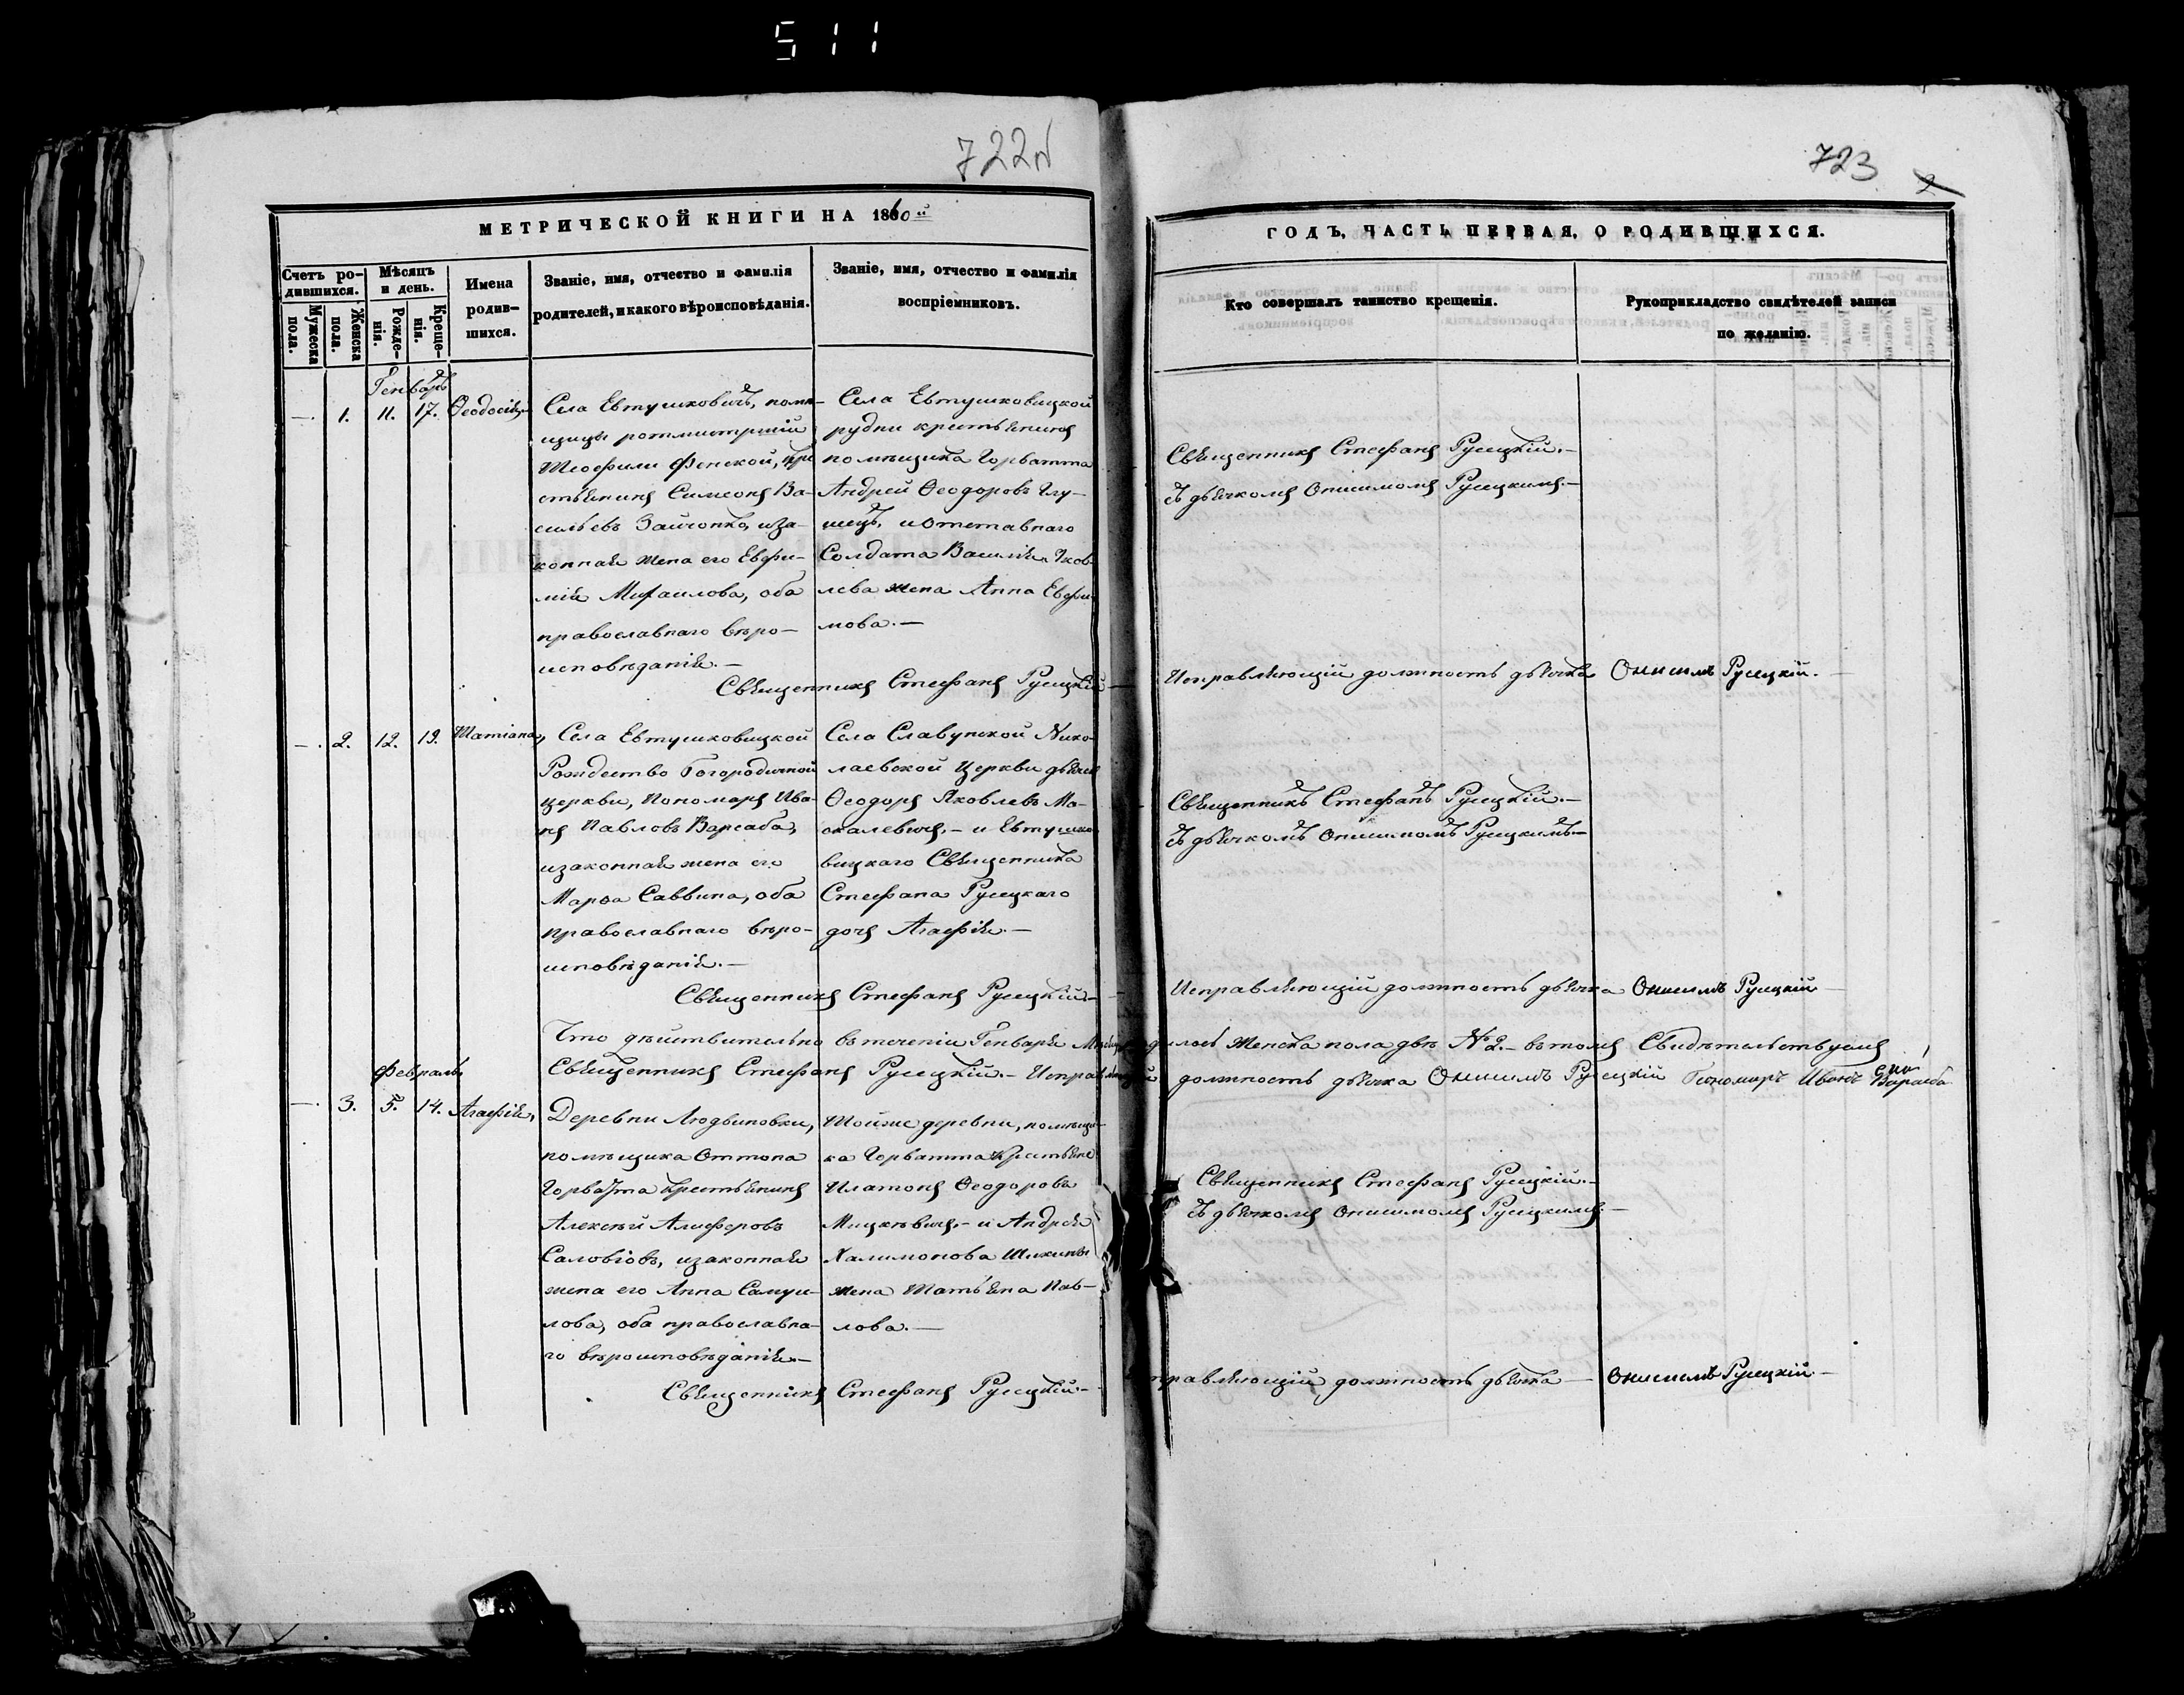 511
722
723
2
МЕТРИЧЕСКОЙ КНИГИ НА 1860й
ГОДЪ, ЧАСТЬ ПЕРВАЯ, О РОДИВШИХСЯ.
Счетъ ро-
дившихся.
Мужеска
пола.
Женска
пола.
Мѣсяцъ
и день.
Рожде-
нія.
Креще-
нія.
Имена
родив-
шихся.
Званіе, имя, отчество и фамилія
родителей, и какого вѣроисповѣданія.
Званіе, имя, отчество и фамилія
воспріемниковъ.
Кто совершалъ таинство крещенія.
Рукоприкладство свидѣтелей записи
по желанію.
Генварь
—. 1. 11. 17. Ѳеодосія,
Села Евтушковичъ, помѣ-
щицы ротмистрши
Теофили Фенской, кре
стьянинъ Симеонъ Ва-
сильевъ Зайчонко, и за-
конная жена его Евфи-
мія Михаилова, оба
православнаго вѣро-
исповѣданія.—
Села Евтушковицкой
рудни крестьянинъ
помѣщика Горватта
Андрей Ѳеодоровъ Глу-
шецъ, и отставнаго
Солдата Василія Яков-
лева жена Анна Евфи-
мова.—
Священникъ Стефанъ Русецкій.—
Съ дьячкомъ Онисимомъ Русецкимъ.—
Священникъ Стефанъ Русецкій—
Исправляющій должность дьячка Онисимъ Русецкій.—
—. 2. 12. 19. Татіана,
Села Евтушковицкой
Рождество Богородичной
церкви, Пономарь Ива-
нъ Павловъ Варсаба,
и законная жена его
Марѳа Саввина, оба
православнаго вѣро-
исповѣданія.—
Села Славунской Нико-
лаевской Церкви дьячекъ
Ѳеодоръ Яковлевъ Мо-
скалевичъ,— и Евтушко-
вицкаго Священника
Стефана Русецкаго
дочь Агафія.—
Священникъ Стефанъ Русецкій.—
Съ дьячкомъ Онисимомъ Русецкимъ—
Священникъ Стефанъ Русецкій.—
Исправляющій должность дьячка Онисимъ Русецкій—
Что дѣйствительно въ теченіи Генваря Женска пола двѣ № 2.— въ томъ Свидѣтельствуемъ
Священникъ Стефанъ Русецкій.— Исправляющій должность дьячка Онисимъ Русецкій Пономарь Иванъ Варсаба
Февраль
—. 3. 5. 14. Агафія,
Деревни Людвиновки,
помѣщика Оттона
Горватта крестьянинъ
Алексѣй Алиферовъ
Саловіовъ, и законная
жена его Анна Самуи-
лова, оба православна-
го вѣроисповѣданія.—
Той же деревни, помѣщи-
ка Горватта крестьяне
Платонъ Ѳеодоровъ
Мицкевичъ,— и Андрея
Халимонова Шикины
жена Татьяна Пав-
лова.—
Священникъ Стефанъ Русецкій.—
Съ дьячкомъ Онисимомъ Русецкимъ.—
Священникъ Стефанъ Русецкій.—
Исправляющій должность дьячка— Онисимъ Русецкій—